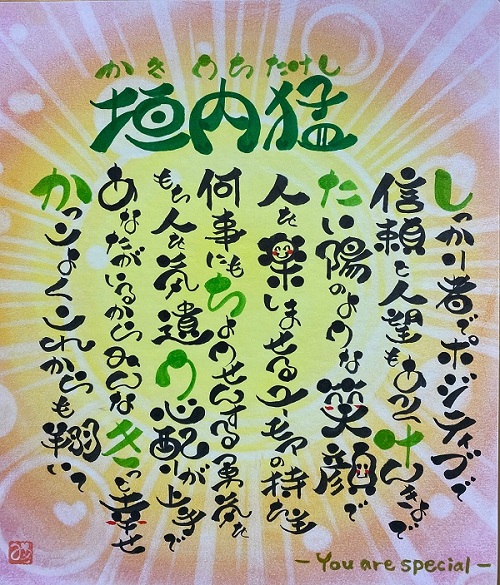 かきうちたけし
垣内猛
しっかり者でポジティブで
信頼と人望もあってけんきょで
たい陽のような笑顔で
人を楽しませるユーモアの持ち主
何事にもちょうせんする勇気を
もち人を気遣う心配りが上手で
あなたがいるからみんなきっと幸せ
かっこよくこれからも翔いて
-You are special-